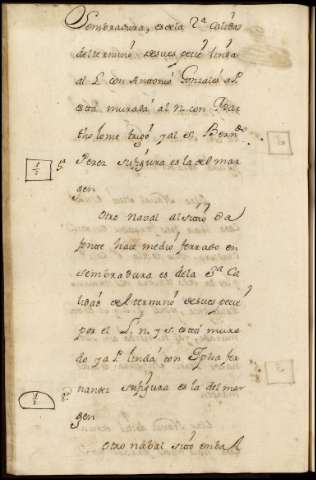 Sembradura, es de la 2ª Calidad
del termino desu especie linda
al L. con Antonio Gonzales al P.
esta murada al n. con Bar
tholome trigo y al S. Bernᵈᵒ
Perez su figura es la del mar
gen
Otro nabal al sitio da
fonte hace medio ferrado en
Sembradura es dela 3ª Ca
lidad del termino desu especie
por el L. n. y s. esta mura
do y al P. linda con fer
nandez su figura es la del mar
gen
Otro nabal sitio en